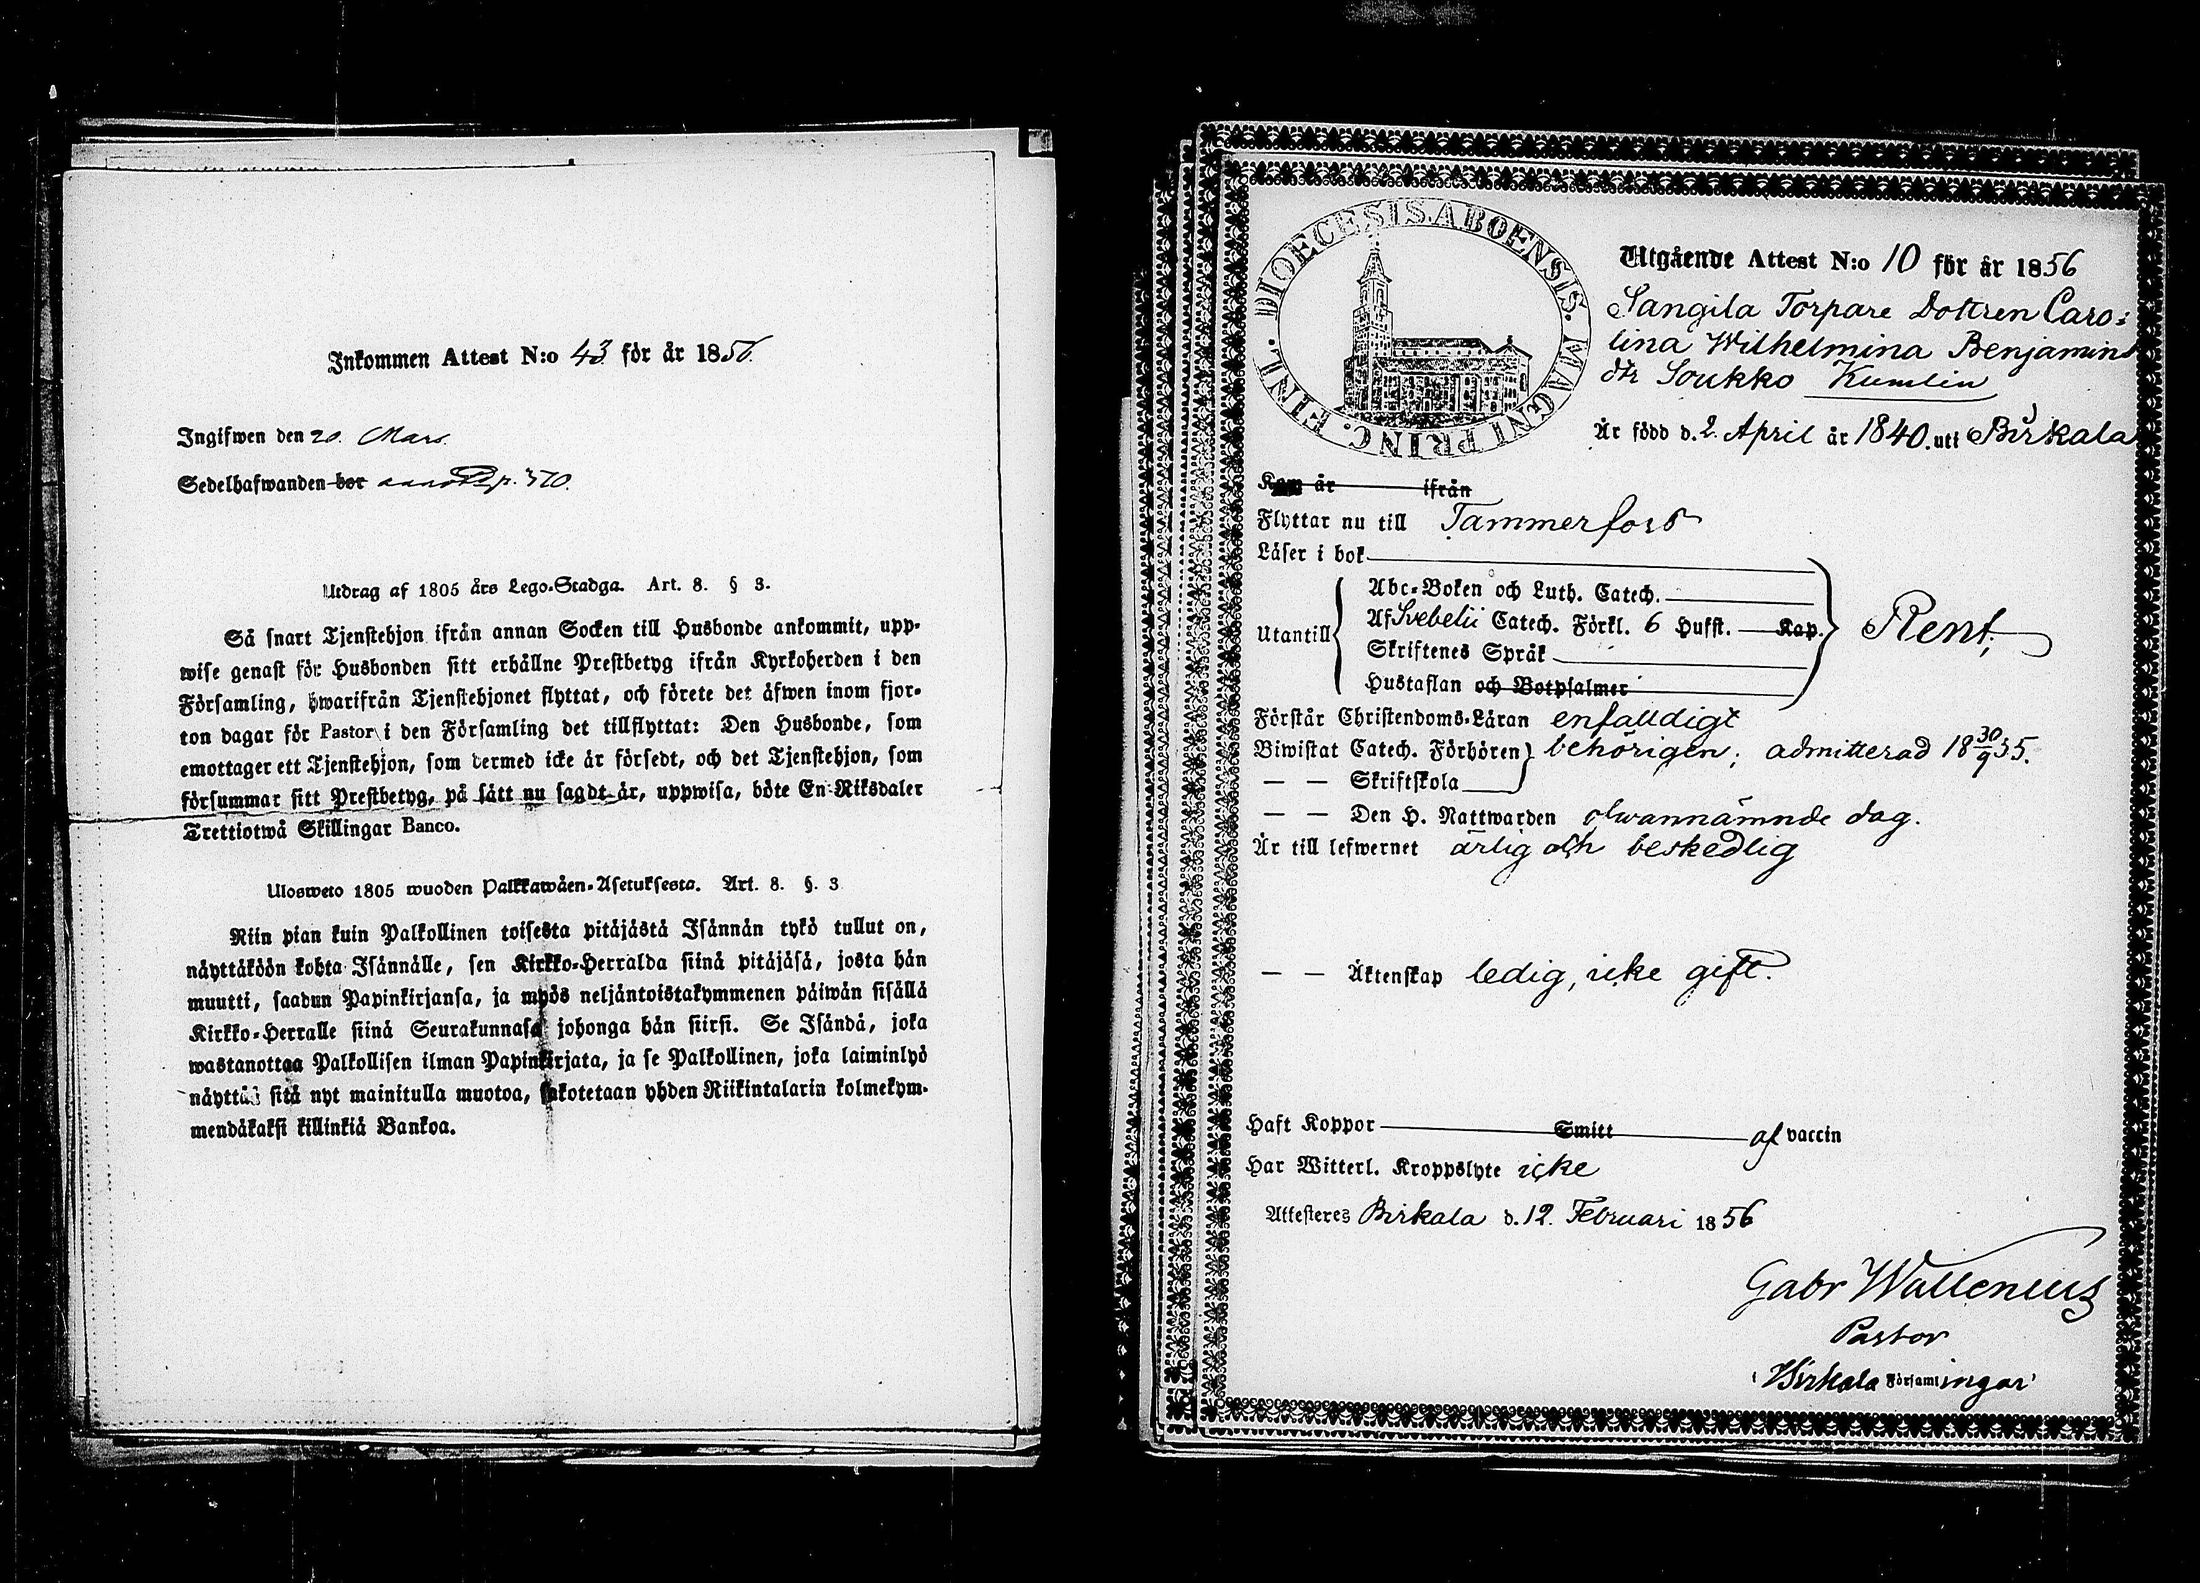 Inkommen Attest N:o 43 för år 1856.
Ingifwen den 20. Mars.
Sedelhafwanden bor anno Pp. 370.
Utdrag af 1805 års Lego-Stadga. Art. 8. § 3.
Så snart Tjenstehjon ifrån annan Socken till Husbonde ankommit, upp-
wise genast för Husbonden sitt erhållne Prestbetyg ifrån Kyrkoherden i den
Församling, hwarifrån Tjenstehjonet flyttat, och förete det äfwen inom fjor-
ton dagar för Pastor i den Församling det tillflyttat: Den Husbonde, som
emottager ett Tjenstehjon, som dermed icke är försedt, och det Tjenstehjon, som
försummar sitt Prestbetyg, på sätt nu sagdt är, uppwisa, böte En Riksdaler
Trettiotwå Skillingar Banco.
Ulosweto 1805 wuoden Palkkawäen-Asetuksesta. Art. 8. §. 3
Niin pian kuin Palkollinen toisesta pitäjästä Isännän tykö tullut on,
näyttäköön kohta Isännälle, sen Kirkko-Herralda siinä pitäjäsä, josta hän
muutti, saadun Papinkirjansa, ja myös neljäntoistakymmenen päiwän sisällä
Kirkko-Herralle siinä Seurakunnasa johonga hän siirsi. Se Isändä, joka
wastanottaa Palkollisen ilman Papinkirjata, ja se Palkollinen, joka laiminlyö
näyttää sitä nyt mainitulla muotoa, sakotetaan yhden Riikintalarin kolmekym-
mendäkaksi killinkiä Bankoa.
DIOECESIS. ABOENSIS. MAGNI PRINC. FINL.
Utgående Attest N:o 10 för år 1856
Sangila Torpare Dottren Caro-
lina Wilhelmina Benjamins
dtr Soukko Kumlin
Är född d. 2. April år 1840. uti Birkala
Kom år ifrån
Flyttar nu till Tammerfors
Läser i bok
Abc-Boken och Luth. Catech.
Utantill Af Svebelii Catech. Förkl. 6 Hufst. Kap. Rent,
Skriftenes Språk
Hustaflan och Botpsalmer
Förstår Christendoms-Läran enfaldigt
Biwistat Catech. Förhören behörigen; admitterad 18 30/9 55.
— — Skriftskola
— — Den H. Nattwarden ofwannämnde dag.
Är till lefwernet ärlig och beskedlig
— — Äktenskap ledig, icke gift.
Haft Koppor Smitt af vaccin
Har Witterl. Kroppslyte icke
Attesteres Birkala d. 12. Februari 1856
Gabr Wallenius
Pastor
i Birkala Församlingar